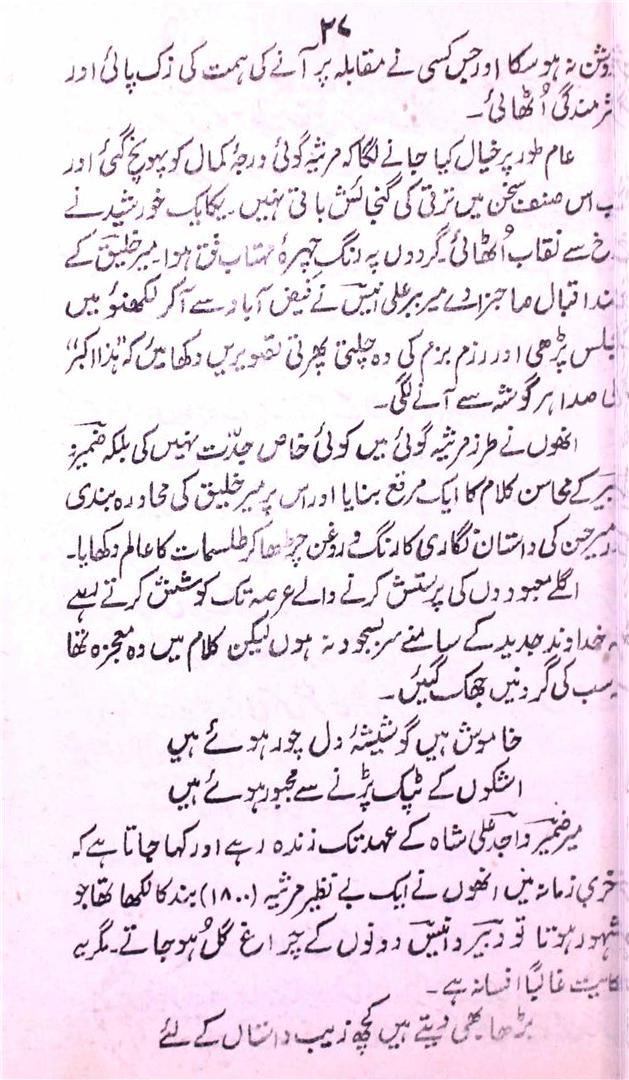 ۲۷
روشن نہ ہو سکا اور جس کسی نے مقابلہ پر آنے کی ہمت کی زک پائی اور
شرمندگی اُٹھائی۔
عام طور پر خیال کیا جانے لگا کہ مرثیہ گوئی درجۂ کمال کو پہونچ گئی اور
اب اس صنف سخن میں ترقی کی گنجائش باقی نہیں۔ یکایک خورشید نے
رخ سے نقاب اُٹھائی۔ گردوں پہ رنگِ چہرۂ مہتاب فق ہوا۔ میر خلیق کے
بلند اقبال صاحبزادے میر ببر علی انیسؔ نے فیض آباد سے آکر لکھنؤ میں
مجلس پڑھی اور رزم بزم کی وہ چلتی پھرتی تصویریں دکھائیں کہ "ہذا اکبر"
کی صدا ہر گوشہ سے آنے لگی۔
انھوں نے طرز مرثیہ گوئی میں کوئی خاص جدّت نہیں کی بلکہ ضمیرؔ و
دبیر کے محاسن کلام کا ایک مرقع بنایا اور اس پر میر خلیق کی محاورہ بندی
اور میر حسن کی داستان نگاری کا رنگ و روغن چڑھا کر طلسمات کا عالم دکھایا۔
اگلے معبودوں کی پرستش کرنے والے عرصہ تک کوشش کرتے رہے
کہ خداوند جدید کے سامنے سر بسجود نہ ہوں لیکن کلام میں وہ معجزہ تھا
سب کی گردنیں جھک گئیں۔
خاموش ہیں گو شیشۂ دل چور ہوئے ہیں
اشکوں کے ٹپک پڑنے سے مجبور ہوئے ہیں
میر ضمیرؔ واجد علی شاہ کے عہد تک زندہ رہے اور کہا جاتا ہے کہ
آخری زمانہ میں انھوں نے ایک بے نظیر مرثیہ (۱۸۰۰) بند کا لکھا تھا جو
مشہور ہوتا تو دبیرؔ و انیسؔ دونوں کے چراغ گُل ہو جاتے۔ مگر یہ
حکایت غالباً افسانہ ہے۔
بڑھا بھی دیتے ہیں کچھ زیب داستاں کے لئے